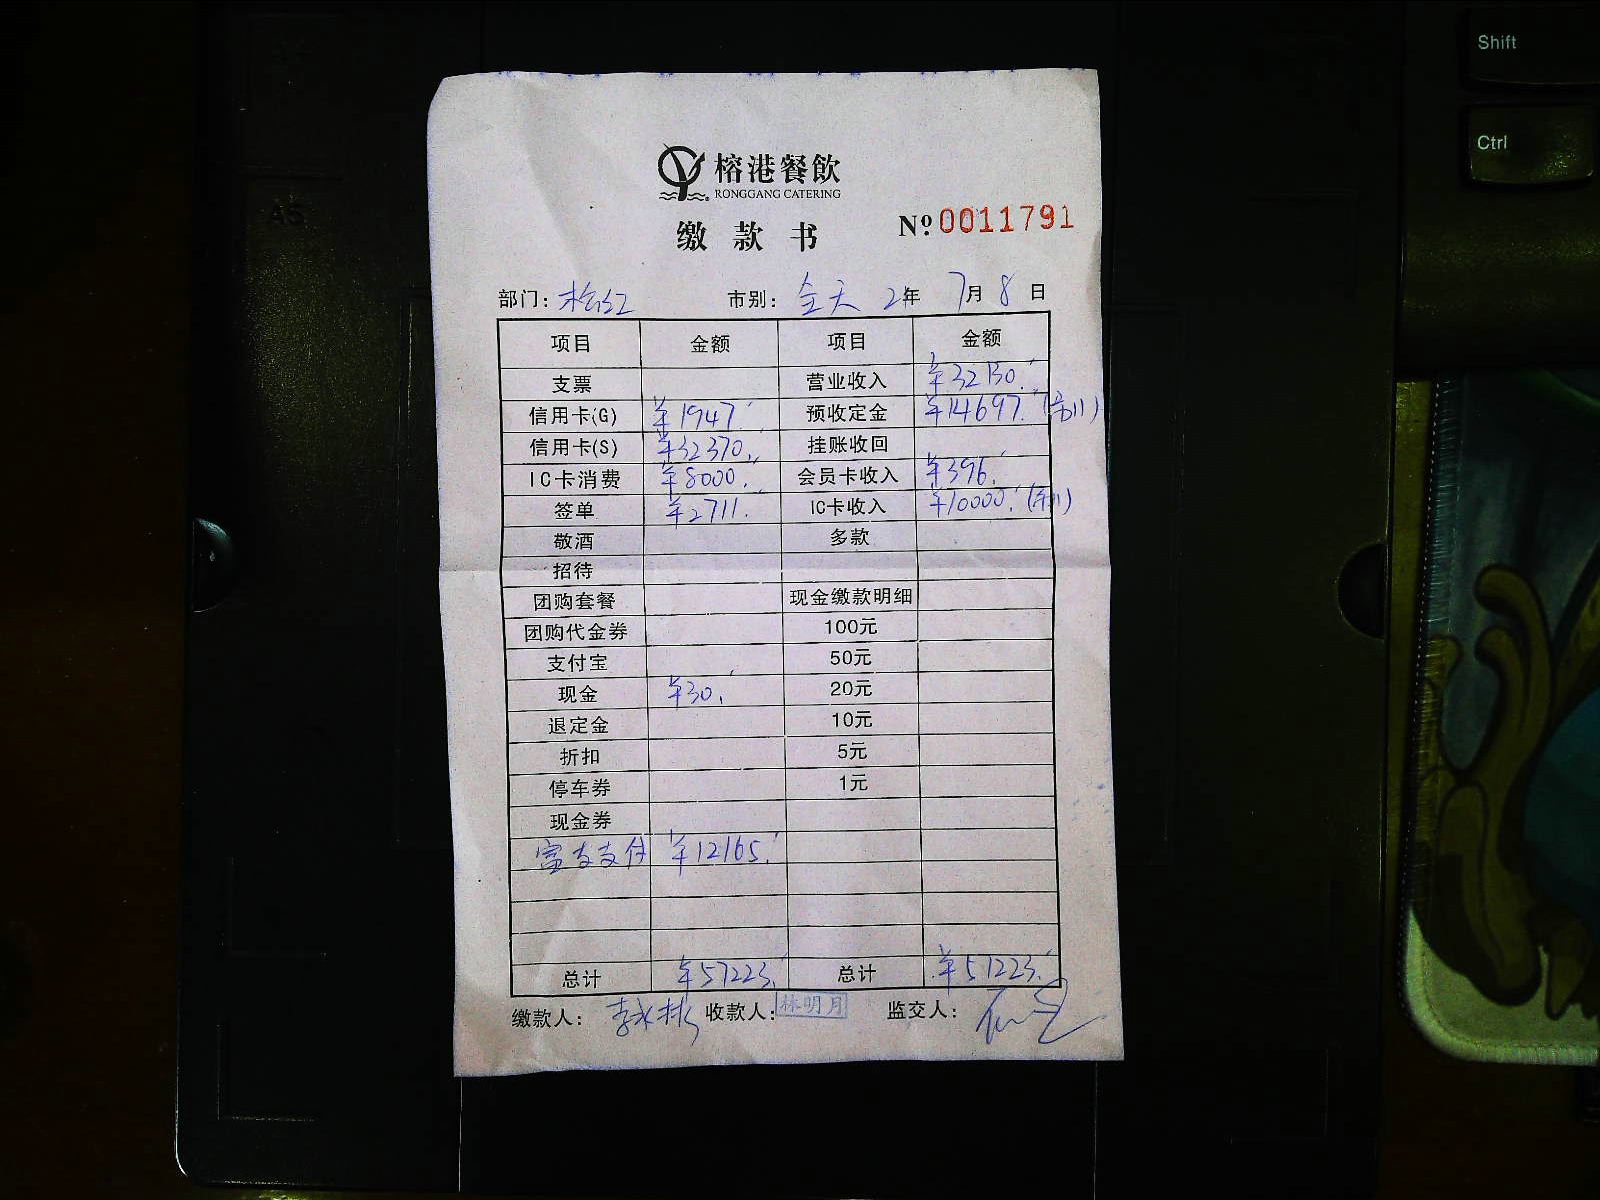 榕港餐飲
RONGGANG CATERING
缴款书
№ 0011791
部门: 市别: 全天 2年 7月 8日
项目 金额 项目 金额
支票 营业收入 ¥32130.
信用卡(G) ¥1947. 预收定金 ¥14697.
信用卡(S) ¥32370. 挂账收回
IC卡消费 ¥8000. 会员卡收入 ¥396.
签单 ¥2711. IC卡收入 ¥10000.
敬酒 多款
招待
团购套餐 现金缴款明细
团购代金券 100元
支付宝 50元
现金 ¥30. 20元
退定金 10元
折扣 5元
停车券 1元
现金券
支付 ¥12165.
总计 ¥57223. 总计 ¥57223.
缴款人: 收款人: 林明月 监交人:
A5
Shift
Ctrl